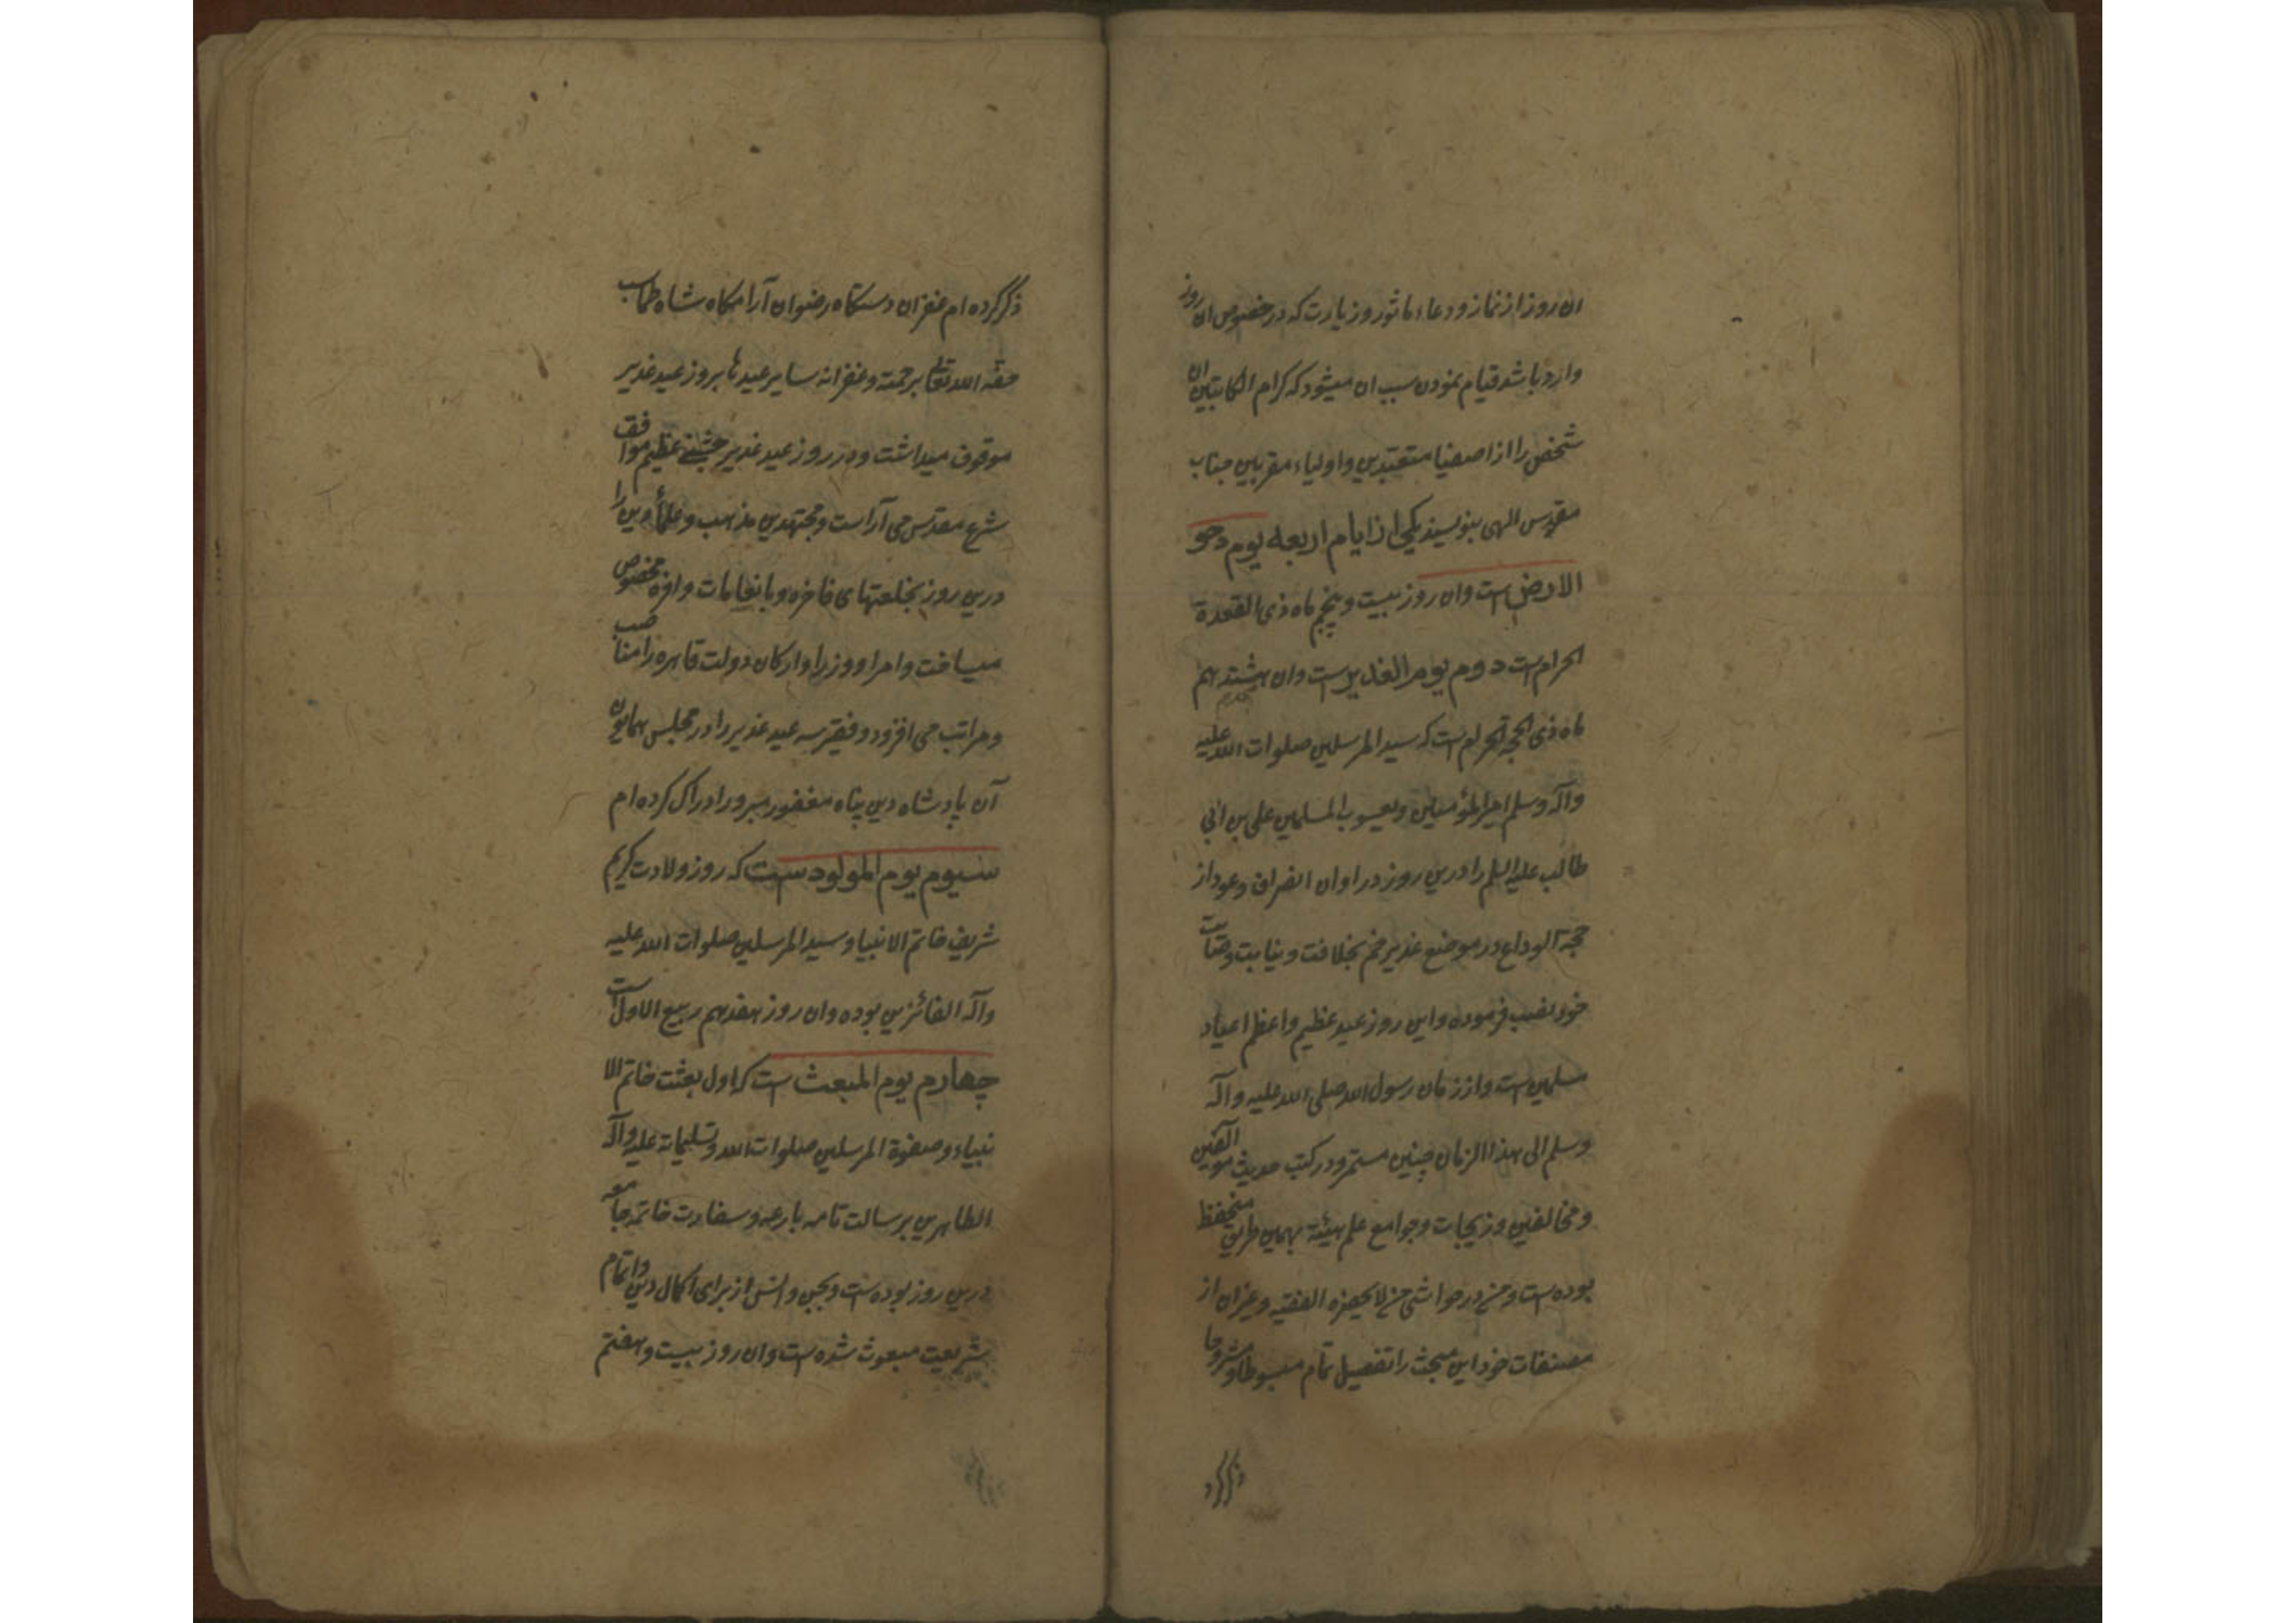 ان روز از نماز و دعاء ماثور و زیارت که در خصوص ان روز
وارد باشد قیام نمودن سبب ان میشود که کرام الکاتبین ان
شخص را از اصفیا متعبدین و اولیاء مقربین جناب
مقدس الهی بنویسند یکی از ایام اربعه یوم دحو
الارض است و ان روز بیست و پنجم ماه ذی القعدة
الحرام است دوم یوم الغدیر است و ان هیشتدهم
ماه ذی الحجة الحرام است که سید المرسلین صلوات الله علیه
و آله و سلم امیر المؤمنین و یعسوب المسلمین علی بن ابی
طالب علیه السلم را درین روز در اوان انصراف و عود از
حجة الوداع در موضع غدیر خم بخلافت و نیابت و وصایت
خود نصب فرموده و این روز عید عظیم و اعظم اعیاد
مسلمین است و از زمان رسول الله صلی الله علیه و آله
و سلم الی هذا الزمان چنین مستمر و در کتب حدیث موالفین
و مخالفین و زیجات و جوامع علم هیئة بهمین طریق منحفظ
بوده است و من در حواشی من لا یحضره الفقیه و غیر ان از
مصنفات خود این مبحث را تفصیل تمام مبسوطا و مشروحا
ذکر کرد
ذکر کرده ام غفران دستکاه رضوان آرامکاه شاه طماسب
حفه الله تعالی برحمته و غفرانه سایر عیدها بروز عید غدیر
موقوف میداشت و در روز عید غدیر جشنی عظیم موافق
شرع مقدس می آراست و مجتهدین مذهب و علمأ دین را
درین روز بخلعتهای فاخره و بانعامات وافره مخصوص
میساخت و امرا و وزرا و ارکان دولت قاهره را مناصب
و مراتب می افزود و فقیر سه عید غدیر را در مجلس همایون
آن پادشاه دین پناه مغفور مبرور ادراک کرده ام
سیوم یوم المولود ست که روز ولادت کریم
شریف خاتم الانبیا و سید المرسلین صلوات الله علیه
و آله الفائزین بوده و ان روز هفدهم ربیع الاول است
چهارم یوم المبعث است که اول بعثت خاتم الا
نبیاء و صفوة المرسلین صلوات الله و تسلیماته علیه و آله
الطاهرین برسالت تامه بارعه و سفارت خاتمه جامعه
درین روز بوده است و بجن و انس از برای اکمال دین و اتمام
شریعت مبعوث شده است و ان روز بیست و هفتم